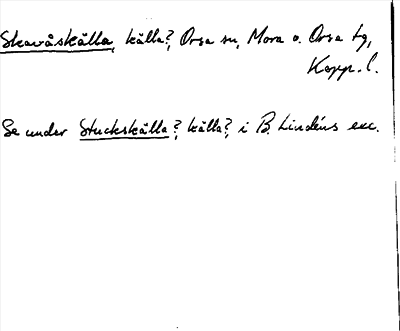 Skavåskälla, källa?, Orsa sn, Mora o. Orsa tg,
Kopp. l.
Se under Stuckskälla?, källa?, i B. Lindéns exc.